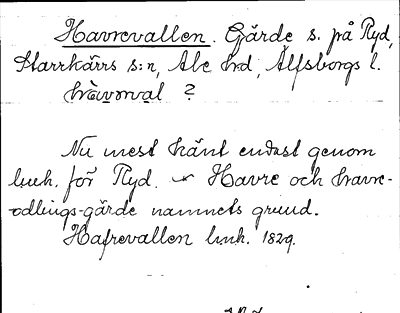 Havrevallen. Gärde s. på Ryd,
Starrkärrs s:n, Ale hrd, Älfsborgs l.
?
Nu mest känt endast genom
lmk. för Ryd. Havre och havre-
odlings-gärde namnets grund.
Hafrevallen lmk. 1829.